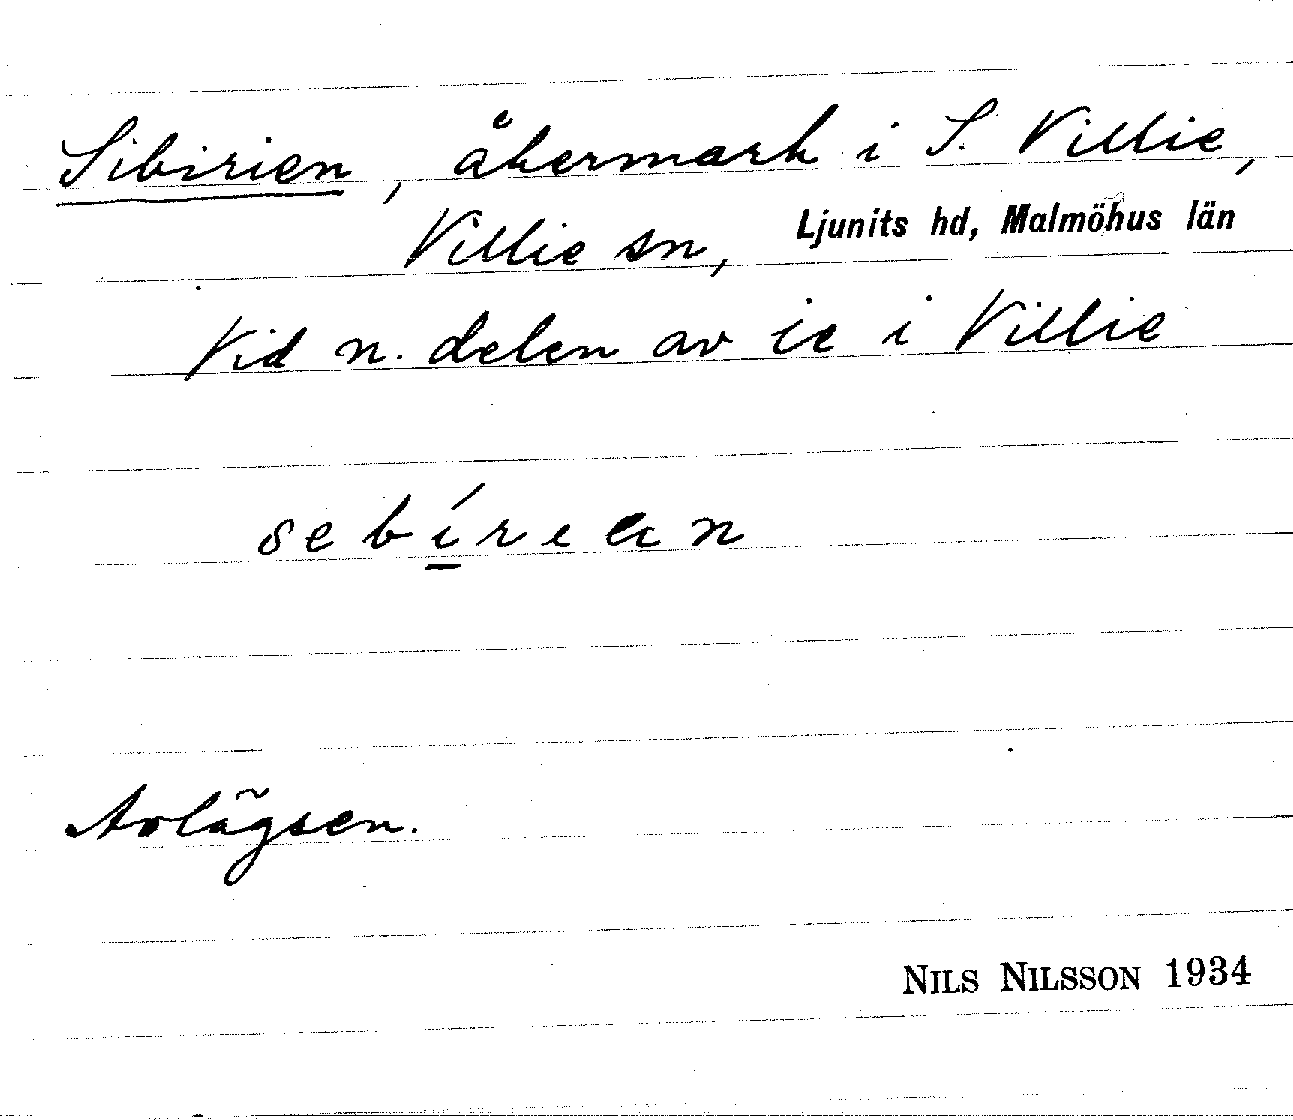 Sibirien, åkermark i S. Villie,
Villie sn, Ljunits hd, Malmöhus län
Vid n. delen av ie i Villie
sebírean
Avlägsen.
NILS NILSSON 1934